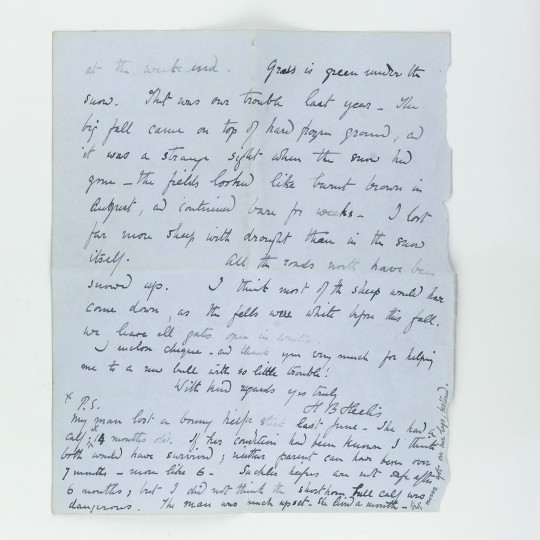 at the week-end. Grass is green under the
snow. That was our trouble last year - The
big fall came on top of hard frozen ground, and
it was a strange sight when the snow had
gone - the fields looked like burnt brown in
August, and continued bare for weeks - I lost
far more sheep with drought than in the snow
itself. All the roads north have been
snowed up. I think most of the sheep would have
come down, as the fells were white before this fall.
we leave all gates open in winter.
I inclose cheque - and thank you very much for helping
me to a new bull with so little trouble!
With kind regards yrs truly
H B Heelis
x P.S.
My man lost a bonny heifer last June - She had
calf; 14 months old. If her condition had been known I think
both would have survived; neither parent can have been over
7 months - more like 6 - Suckler heifers are not safe after
6 months; but I did not think the shorthorn bull calf was
dangerous. The man was much upset - she lived a month -